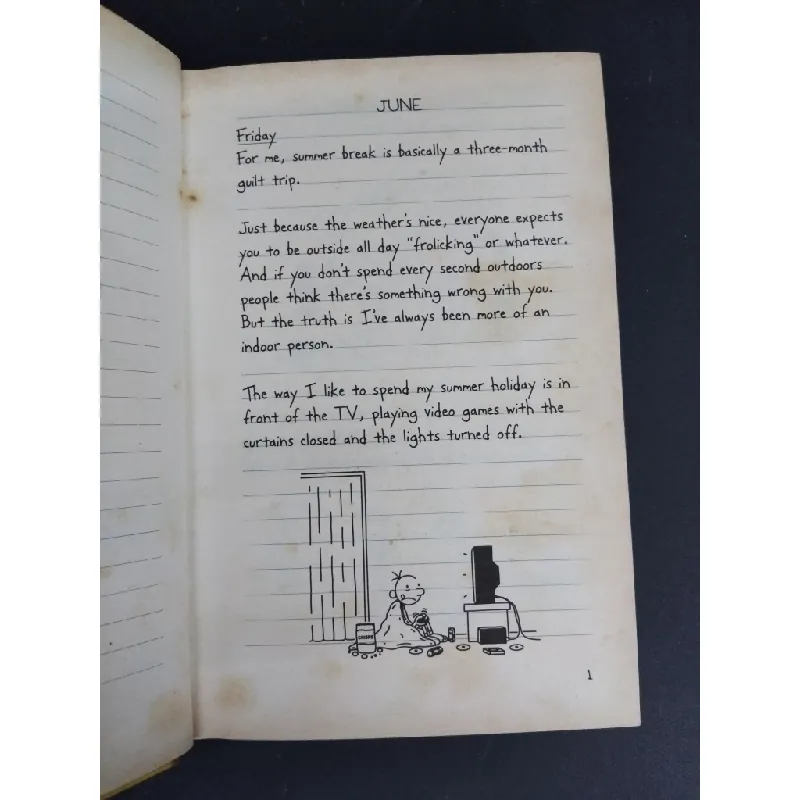 JUNE
Friday
For me, summer break is basically a three-month
guilt trip.
Just because the weather's nice, everyone expects
you to be outside all day "frolicking" or whatever.
And if you don't spend every second outdoors
people think there's something wrong with you.
But the truth is I've always been more of an
indoor person.
The way I like to spend my summer holiday is in
front of the TV, playing video games with the
curtains closed and the lights turned off.
CRISPS
1